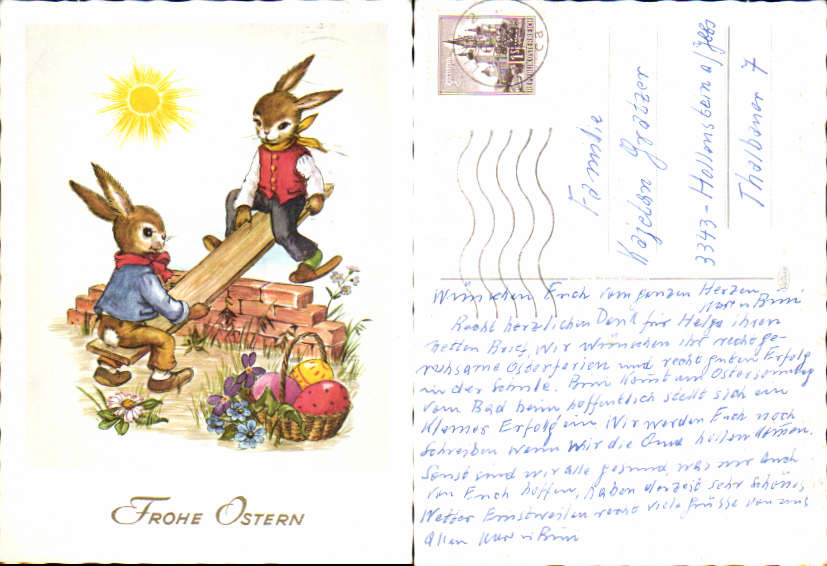 FROHE OSTERN
REPUBLIK ÖSTERREICH
Familie
Kajetan Gratzer
3343-Hollenstein a/Ybbs
Thalbauer 7
Wünschen Euch vom ganzen Herzen
Recht herzlichen Dank für Helga ihren
netten Brief, Wir wünschen ihr recht ge-
ruhsame Osterferien und recht guten Erfolg
in der Schule. kommt am Ostersonntag
vom Bad heim hoffentlich stellt sich ein
kleiner Erfolg ein Wir werden Euch noch
Schreiben wenn Wir die holen kommen.
Sonst sind wir alle gesund, was wir Auch
von Euch hoffen, haben derzeit sehr Schönes
Wetter Einstweilen recht viele Grüsse von uns
Allen